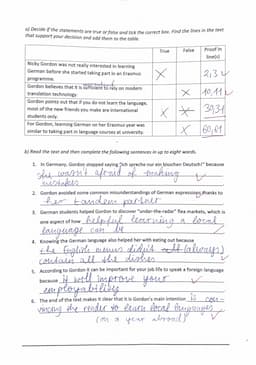 a) Decide if the statements are true or false and tick the correct box. Find the lines in the text
that support your decision and add them to the table.
True False Proof in
line(s)
Nicky Gordon was not really interested in learning
German before she started taking part in an Erasmus
programme. X 2,3
Gordon believes that it is sufficient to rely on modern
translation technology. X 10,11
Gordon points out that if you do not learn the language,
most of the new friends you make are international
students only. X X 30,31
For Gordon, learning German on her Erasmus year was
similar to taking part in language courses at university. X 60,61
b) Read the text and then complete the following sentences in up to eight words.
1. In Germany, Gordon stopped saying "Ich spreche nur ein bisschen Deutsch!" because
she wasn't afraid of making
mistakes
2. Gordon avoided some common misunderstandings of German expressions thanks to
her tandem partner
3. German students helped Gordon to discover "under-the-radar" flea markets, which is
one aspect of how helpful learning a local
language can be
4. Knowing the German language also helped her with eating out because
the English menus didn't (always)
contain all the dishes
5. According to Gordon it can be important for your job life to speak a foreign language
because it will improve your
employability
6. The end of the text makes it clear that it is Gordon's main intention is con-
vincing the reader to learn local languages
(on a year abroad)